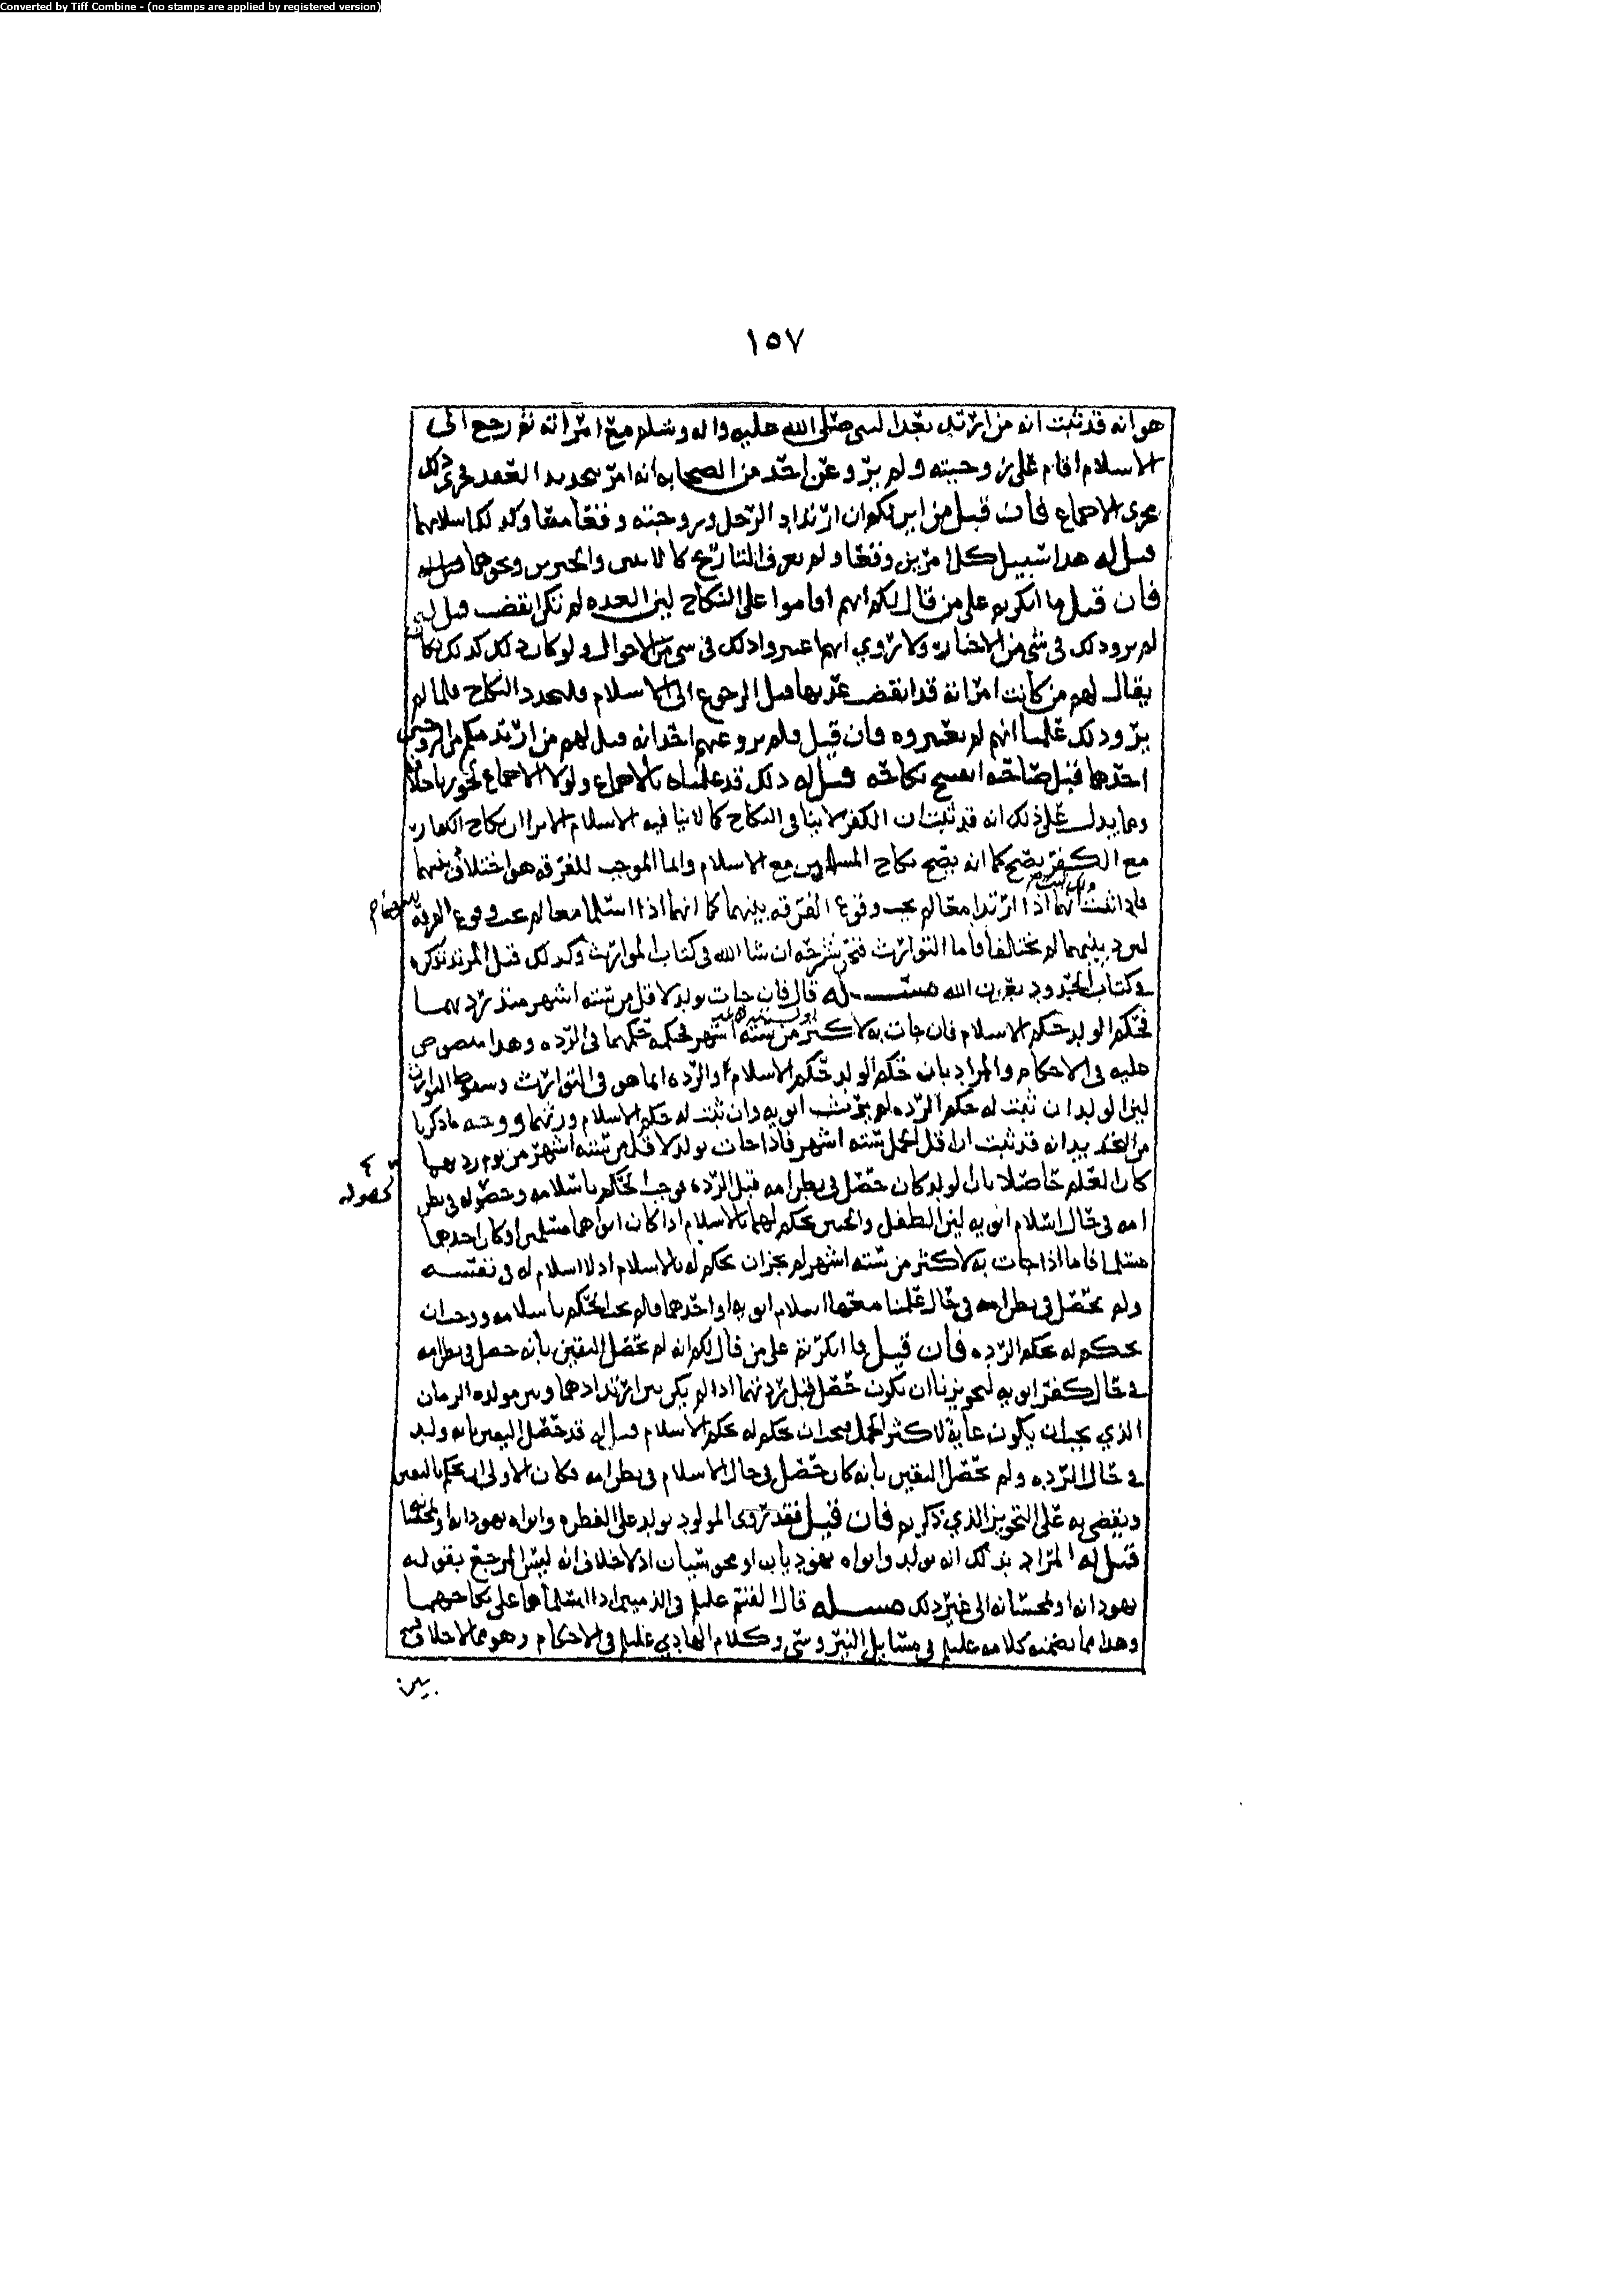 Converted by Tiff Combine - (no stamps are applied by registered version)
١٥٧
هو انه قد ثبت انه من ارتد بعد النبي صلى الله عليه واله وسلم مع امراته ثم رجع الى
الاسلام اقام على زوجيته ولم يرو عن احد من الصحابه انه امر بتجديد العقد فجرى ذلك
مجرى الاجماع فان قيل من اين لكم ان ارتداد الرجل وزوجته وقعا معا وكذلك اسلامهما
قيل له هذا سبيل كل امرين وقعا ولم يعرف التاريخ كا ونحوهما
فان قيل ما انكرتم على من قال لكم انهم اقاموا على النكاح لين العده لم تكن انقضت قيل له
لم يرو ذلك في شي من الاخبار ولا روي انهم اعتبروا ذلك في شي من الاحوال ولو كان ذلك كذلك لكان
يقال لهم من كانت امراته قد انقضت عدتها قبل الرجوع الى الاسلام فليجدد النكاح فلما لم
يرو ذلك علمنا انهم لم يعتبروه فان قيل فلم يرو عنهم احد انه قيل لهم من ارتد منكم من الزوجين
احدهما قبل صاحبه انفسخ نكاحه قيل له ذلك قد علمناه بالاجماع ولولا الاجماع
ومما يدل على ذلك انه قد ثبت ان الكفر لا ينافي النكاح كما لا ينافيه الاسلام الا ترا ان نكاح الكفار
مع الكفر يصح كما انه يصح نكاح المسلمين مع الاسلام وانما الموجب للفرقه هو اختلاف دينهما
فاذا ثبت انهما اذا ارتدا معا لم يجب وقوع الفرقه بينهما كما انهما اذا اسلما معا لم يجب وقوع الفرقه
لين دينهما لم يختلفا فاما التوارث فنحن نشرحه ان شا الله في كتاب المواريث وكذلك قتل المرتد نذكره
في كتاب الحدود بعون الله مسئله قال فان جات بولد لاقل من سته اشهر منذ ردتهما
فحكم الولد حكم الاسلام فان جات به لاكثر من سته اشهر فحكمه حكمهما في الرده وهذا منصوص
عليه في الاحكام والمراد بان حكم الولد حكم الاسلام او الرده انما هو في التوارث وسقوط التوارث
لين الولد ان ثبت له حكم الرده لم يرث ابويه وان ثبت له حكم الاسلام ورثهما ووجه ما ذكرنا
من التحديد انه قد ثبت ان اقل الحمل سته اشهر فاذا جات بولد لاقل من سته اشهر من يوم ردتهما
كان العلم حاصلا بان الولد كان حصل في بطن امه قبل الرده فوجب الحكم باسلامه وحصوله في بطن
كحصوله
امه في حال اسلام ابويه لين الطفل والجنين يحكم لهما بالاسلام اذا كان ابواهما مسلمين او كان احدهما
مسلما فاما اذا جات به لاكثر من سته اشهر لم يجز ان يحكم له بالاسلام اذ لا اسلام له في نفسه
ولم يحصل في بطن امه في حال علمنا معها اسلام ابويه او احدهما فلم يجب الحكم باسلامه ووجب ان
يحكم له بحكم الرده فان قيل ما انكرتم على من قال لكم انه لم يحصل اليقين بانه حصل في بطن امه
في حال كفر ابويه لتجويزنا ان يكون حصل قبل ردتهما اذا لم يكن بين ارتدادهما وبين مولده الزمان
الذي يجب ان يكون غاية لاكثر الحمل فيجب ان يحكم له بحكم الاسلام قيل له قد حصل اليقين بانه ولد
في حال الرده ولم يحصل اليقين بانه كان حصل في حال الاسلام في بطن امه فكان الاولى ان يحكم باليقين
ويقضى به على التجويز الذي ذكرتم فان قيل فقد روى المولود يولد على الفطره وابواه يهودانه او يمجسانه
قيل له المراد بذلك انه يولد وابواه يهوديان او مجوسيان اذ لا خلاف انه ليس المرجع بقوله
يهودانه او يمجسانه الى غير ذلك مسئله قال القسم عليلم في الذميين اذا اسلما هما على نكاحهما
وهذا مما تضمنه كلامه عليلم في مسايل النيروسي وكلام الهادي عليلم في الاحكام وهو مما لا خلاف فيه
بين